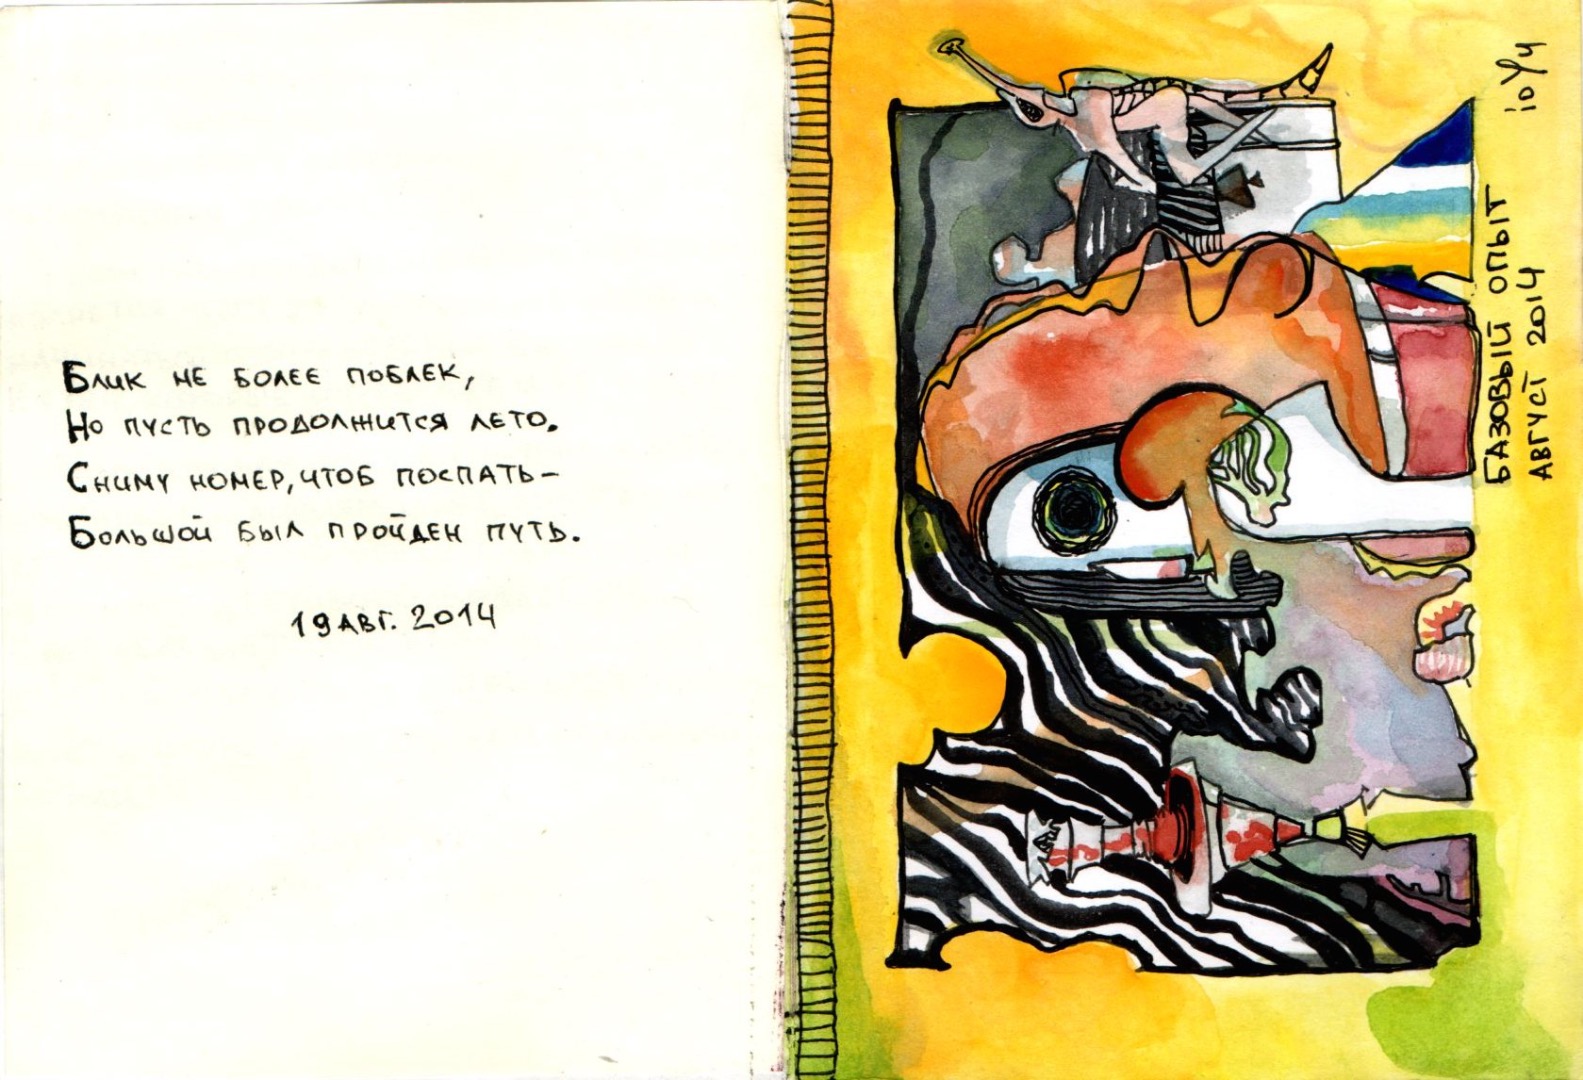 Блик не более поблек,
Но пусть продолжится лето.
Сниму номер, чтоб поспать –
Большой был пройден путь.
19 авг. 2014
БАЗОВЫЙ ОПЫТ
АВГУСТ 2014